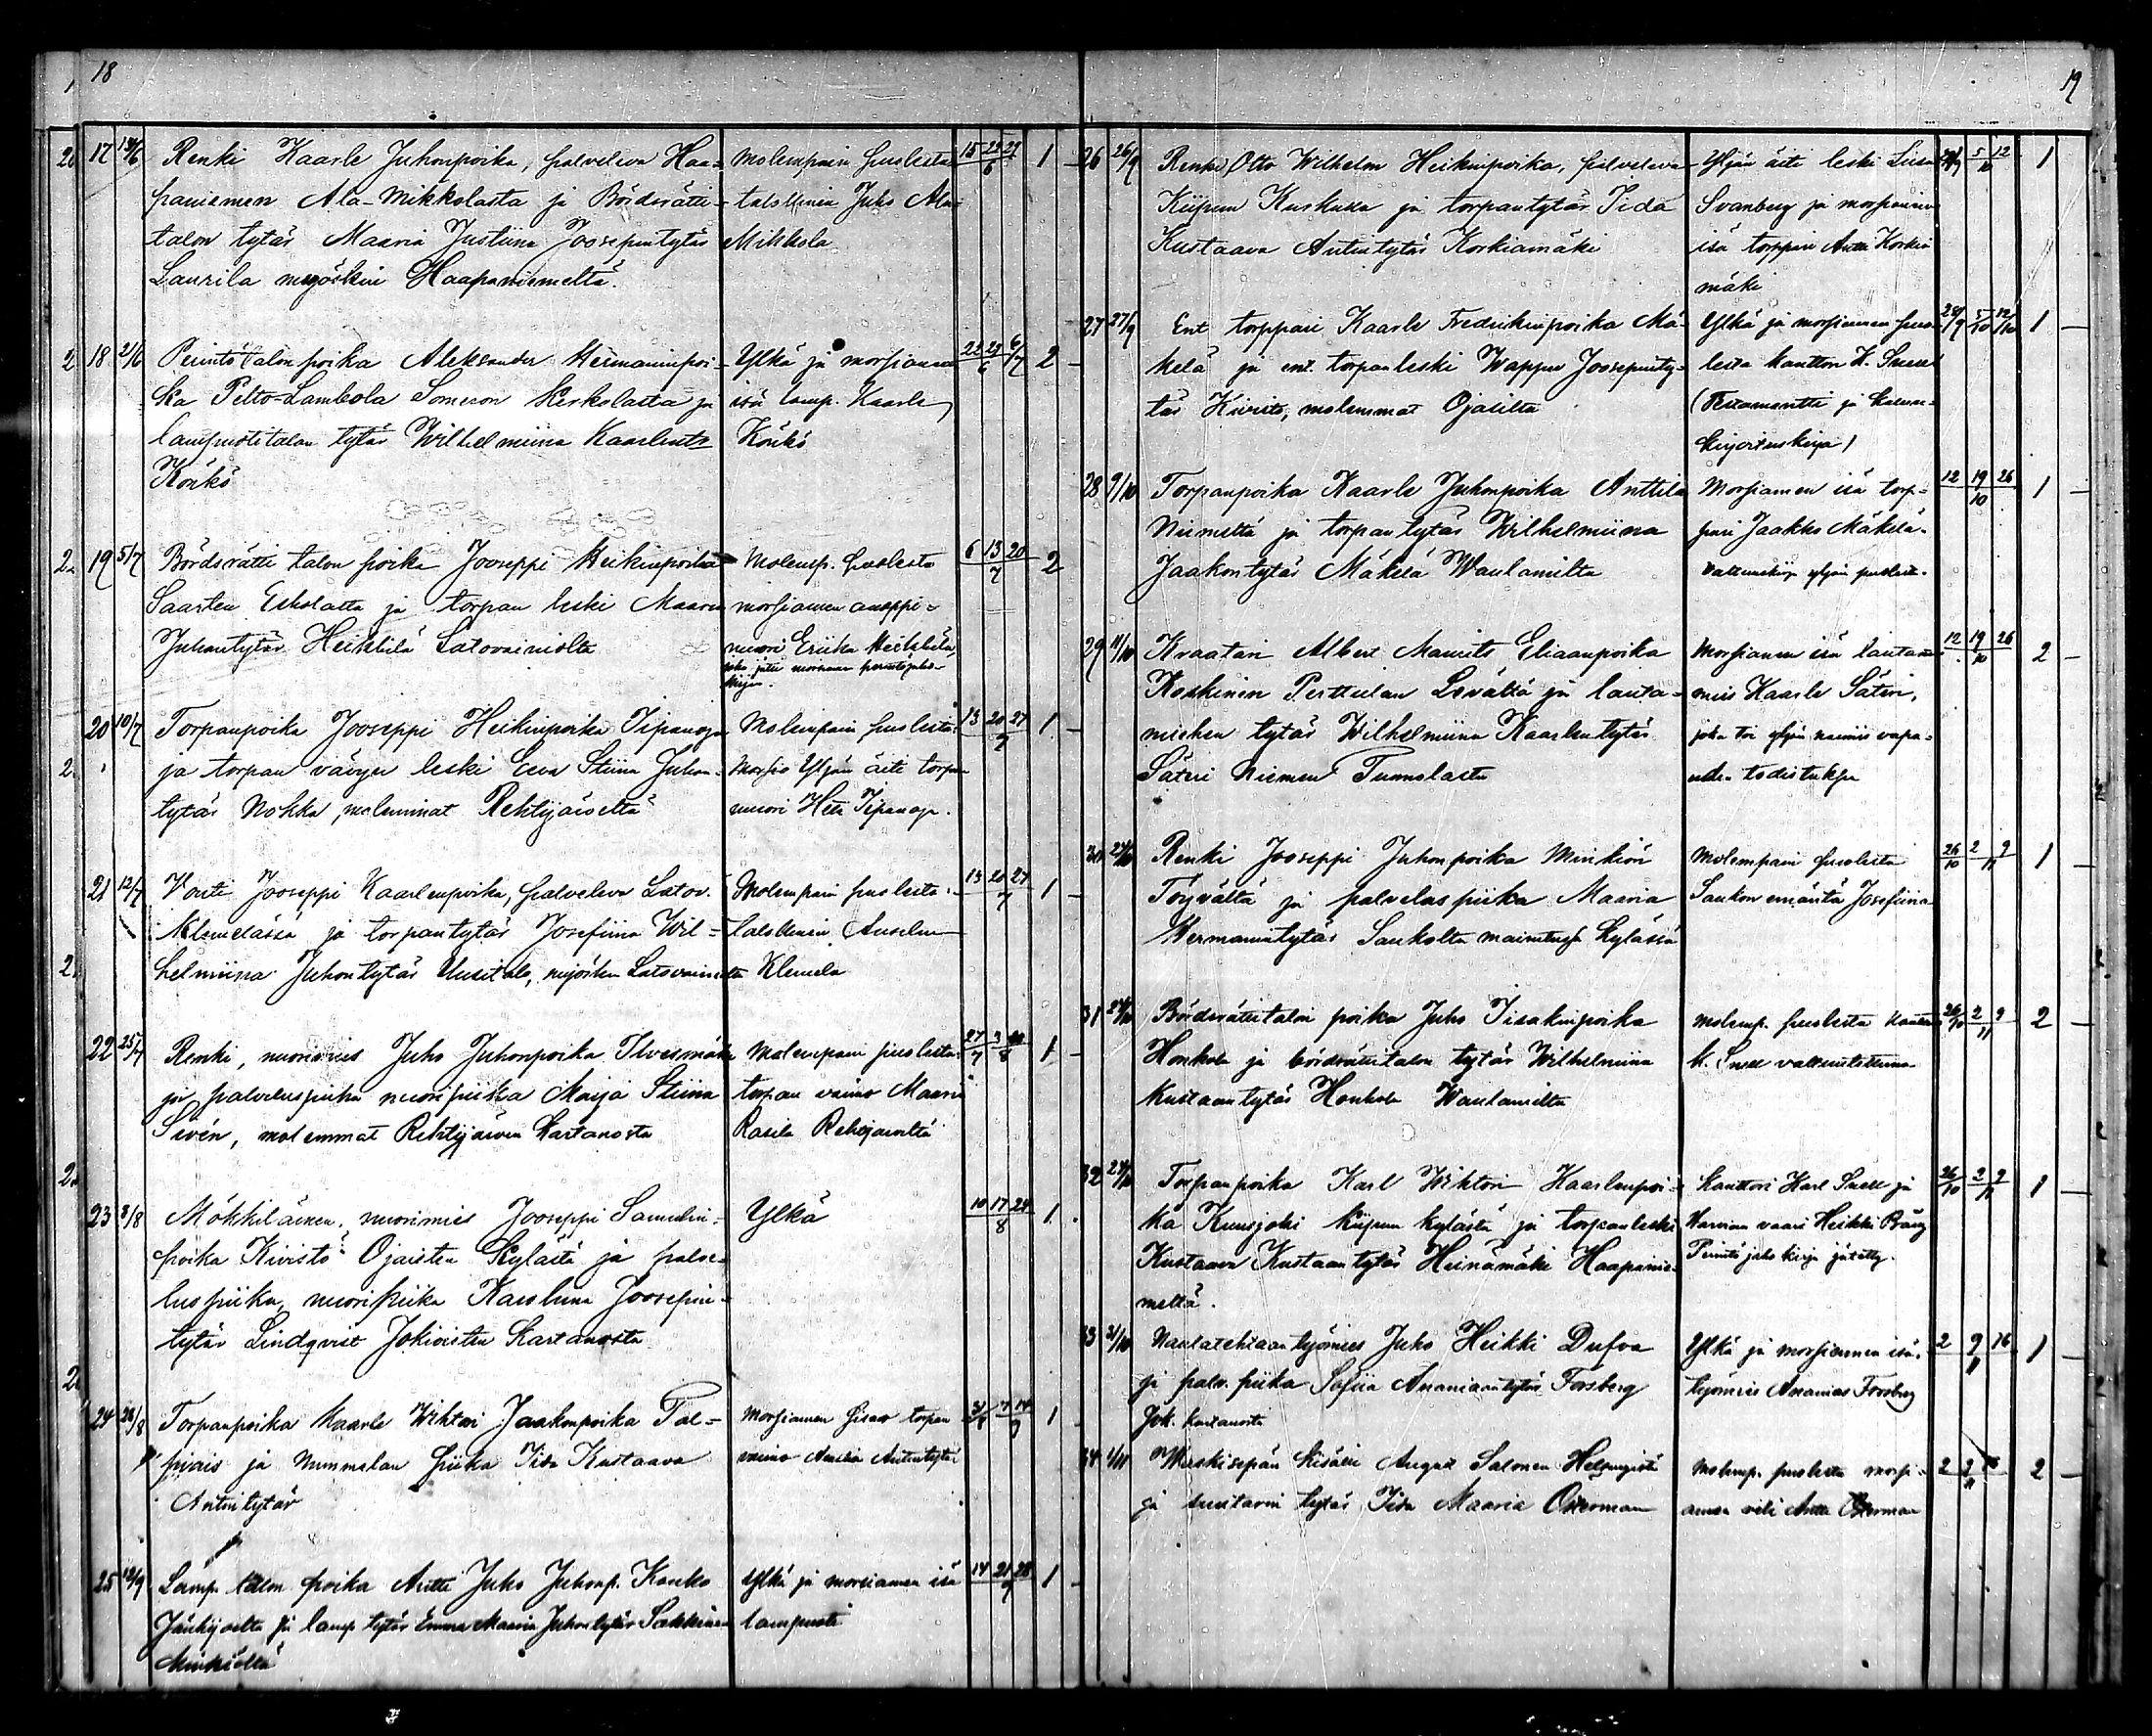 18
17 13/6 Renki Kaarle Juhonpoika, palveleva Haa- Molempain puolesta 15 22 29/6 1
paniemen Ala-Mikkolasta ja Bördsrätti- talollinen Juho Ala-
talon tytär Maaria Justiina Joosepintytär Mikkola
Laurila myöskin Haapaniemeltä.
18 21/6 Perintötalon poika Aleksander Hermaninpoi- Ylkä ja morsiamen 22 29/6 6/7 2
ka Pelto-Lambola Someron Kerkolasta ja isä lamp. Kaarle
lampuotitalon tytär Wilhelmiina Kaarlent Könkö
Könkö
19 5/7 Bördsrätti talon poika Jooseppi Heikinpoika Molemp. puolesta 6 13 20/7 2
Saarten Eskolasta ja torpan leski Maaria morsiamen anoppi-
Juhontytär Heikkilä Latovainiolta muori Eriika Heikkilä,
joka jätti morsiamen perintöjako-
kirjan.
20 10/7 Torpanpoika Jooseppi Heikinpoika Iipanoja Molempain puolesta 13 20 27/7 1
ja torpan vävyn leski Eeva Stiina Juhon- Yljän äiti torpan
tytär Nokka, molemmat Rehtijäiseltä muori Heta Iipanoja.
21 12/7 Vouti Jooseppi Kaarlenpoika, palveleva Latov. Molempain puolesta 13 20 27/7 1
Klemelässä ja torpantytär Josefiina Wil- talollinen Anselm
helmiina Juhontytär Uusitalo, myöskin Latovainiolta Klemela
22 25/7 Renki, nuorimies Juho Juhonpoika Ilvesmäki Molempain puolesta 27/7 3 10/8 1
ja palveluspiika nuoripiika Maija Stiina torpan vaimo Maaria
Sivén, molemmat Rehtijärven kartanosta Rasila Rehtijäiseltä
23 3/8 Mökkiläinen, nuorimies Jooseppi Samulin- Ylkä 10 17 24/8 1
poika Kivistö Ojaisten kylästä ja palve-
luspiika, nuoripiika Karoliina Joosepin-
tytär Lindqvist Jokioisten kartanosta
24 28/8 Torpanpoika Kaarle Wihtori Jaakonpoika Pal- Morsiamen sisar torpan 31/8 7 14/9 1
piais ja Nummelan piika Iida Kustaava vaimo Amalia Antintytär
Antintytär
25 12/9 Lamp. talon poika Antti Juho Juhonp. Kouko Ylkä ja morsiamen isä 14 21 28/9 1
Jänhijoelta ja lamp tytär Emma Maaria Juhontytär Sakkinen lampuoti
Minkiöltä
19
26 26/9 Renki Otto Wilhelm Heikinpoika, palveleva Yljän äiti leski Liisa 28/9 5 12/10 1
Kiipun Kuskussa ja torpantytär Iida Svanberg ja morsiamen
Kustaava Antintytär Korkiamäki isä torppari Antti Korkia
mäki
27 27/9 Ent torppari Kaarle Fredrikinpoika Mä- Ylkä ja morsiamen puo- 28/9 5/10 12/10 1
kelä ja ent. torpanleski Wappu Joosepinty- lesta kanttori K. Snell
tär Kivistö, molemmat Ojasilta (Testamentti ja kaluun-
kirjoituskirja)
28 9/10 Torpanpoika Kaarle Juhonpoika Anttila Morsiamen isä torp- 12 19 26/10 1
Niemeltä ja torpantytär Wilhelmiina pari Jaakko Mäkelä.
Jaakontytär Mäkelä Waulamilta Valtuuskirja yljän puolesta.
29 11/10 Kraatari Albert Maurits Eliaanpoika Morsiamen isä lauta- 12 19 26/10 2
Koskinen Perttulan Levältä ja lauta- mies Kaarle Säteri,
miehen tytär Wilhelmiina Kaarlentytär joka toi yljän naimis vapa-
Säteri Niemen Tummolasta uden todistuksen
30 24/10 Renki Jooseppi Juhonpoika Minkiön Molempain puolesta 26/10 2 9/11 1
Töyvältä ja palveluspiika Maaria Saukon emäntä Josefiina
Hermannintytär Saukolta mainitussa kylässä
31 24/10 Bördsrättitalon poika Juho Iisakinpoika Molemp. puolesta kantt. 26/10 2 9/11 2
Honkola ja bördsrättitalon tytär Wilhelmiina K. Snell valtuutettuna
Kustaantytär Honkola Waulamilta
32 24/10 Torpanpoika Karl Wihtori Kaarlenpoi- Kanttori Karl Snell ja 26/10 2 9/11 1
ka Kuusjoki Kiipun kylästä ja torpanleski vaari Heikki
Kustaava Kustaantytär Heinämäki Haapanie- Perintöjako kirja jätetty.
meltä.
33 31/10 Naulatehtaan työmies Juho Heikki Dufva Ylkä ja morsiamen isä. 2 9 16/11 1
ja palv. piika Sofiia Ananiaantytär Forsberg työmies Ananias Forsberg
Jok. kartanosta
34 1/11 Waskisepän kisälli August Salonen Helsingistä Molemp. puolesta morsi- 2 9 16/11 2
ja suutarin tytär Iida Maaria Österman amen veli Antti Österman